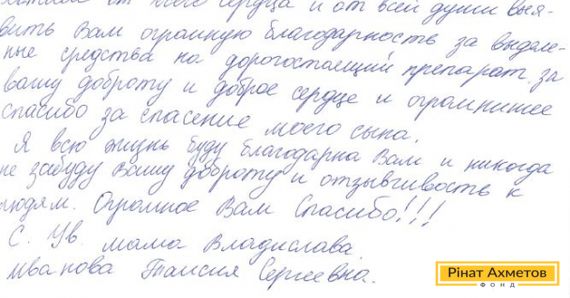 от всего сердца и от всей души выя-
вить Вам огромную благодарность за выделе-
ные средства на дорогостоящий препарат, за
вашу доброту и доброе сердце и огромнишее
спасибо за спасение моего сына.
Я всю жизнь буду благодарна Вам и никогда
не забуду Вашу доброту и отзывчивость к
людям. Огромное Вам Спасибо!!!
С. Ув. мама Владислава.
Иванова Таисия Сергеевна.
Рінат Ахметов
ФОНД